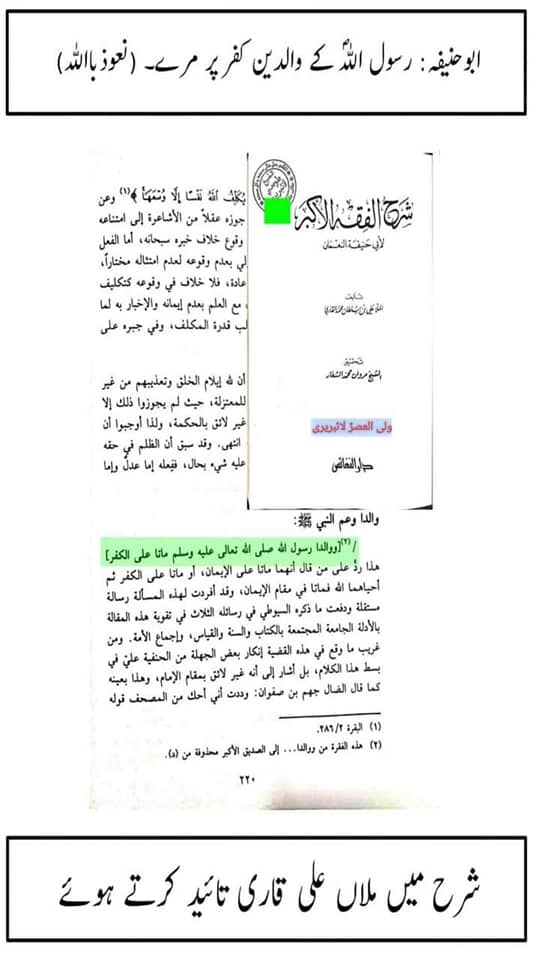 ابو حنیفہ: رسول اللہؐ کے والدین کفر پر مرے۔ (نعوذ باللہ)
يُكَلِّفُ اللَّهُ نَفْسًا إِلَّا وُسْعَهَا ﴾(١) وعن
جوزه عقلاً من الأشاعرة إلى امتناعه
وقوع خلاف خبره سبحانه، أما الفعل
لي بعدم وقوعه لعدم امتثاله مختاراً،
عادة، فلا خلاف في وقوعه كتكليف
، مع العلم بعدم إيمانه والإخبار به لما
لب قدرة المكلف، وفي جبره على
أن لله إيلام الخلق وتعذيبهم من غير
للمعتزلة، حيث لم يجوزوا ذلك إلا
غير لائق بالحكمة، ولذا أوجبوا أن
، انتهى. وقد سبق أن الظلم في حقه
عليه شيء بحال، ففعله إما عدل وإما
شرح الفقه الأكبر
لأبي حنيفة النعمان
تأليف
الملا علي بن سلطان محمد القاري
تحقيق
الشيخ مروان محمد الشعار
ولی العصرؑ لائبریری
دار النفائس
والدا وعم النبي ﷺ:
/ (٢)[ووالدا رسول الله صلى الله تعالى عليه وسلم ماتا على الكفر]
هذا ردٌّ على من قال أنهما ماتا على الإيمان، أو ماتا على الكفر ثم
أحياهما الله فماتا في مقام الإيمان، وقد أفردت لهذه المسألة رسالة
مستقلة ودفعت ما ذكره السيوطي في رسائله الثلاث في تقوية هذه المقالة
بالأدلة الجامعة المجتمعة بالكتاب والسنة والقياس، وإجماع الأمة. ومن
غريب ما وقع في هذه القضية إنكار بعض الجهلة من الحنفية عليّ في
بسط هذا الكلام، بل أشار إلى أنه غير لائق بمقام الإمام، وهذا بعينه
كما قال الضال جهم بن صفوان: وددت أني أحك من المصحف قوله
(١) البقرة ٢/٢٨٦.
(٢) هذه الفقرة من ووالدا... إلى الصديق الأكبر محذوفة من (د).
٢٢٠
شرح میں ملاں علی قاری تائید کرتے ہوئے